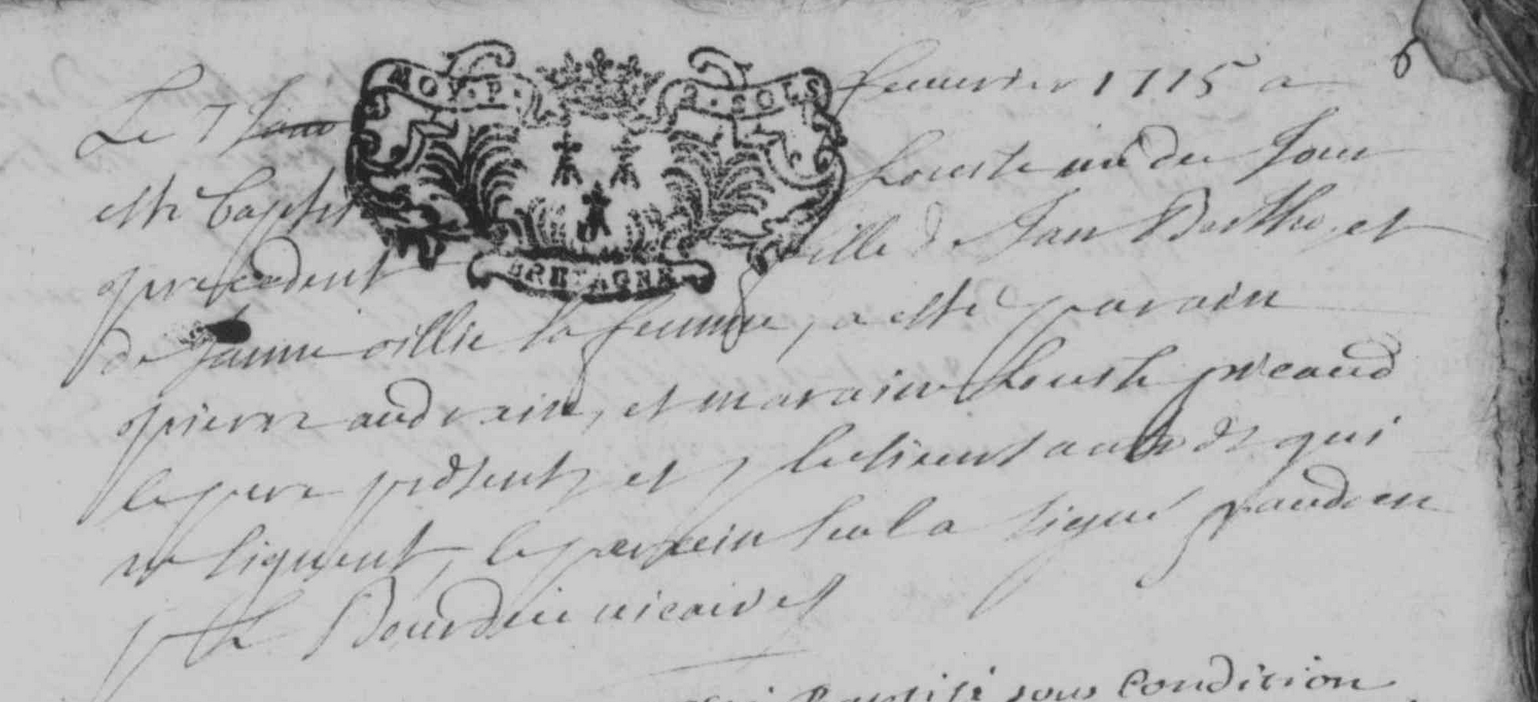 6
MOY. P. 2. SOLS
BRETAGNE
Le 7 feuvrier 1715 a
esté baptis Louise née du Jour
precedent fille de Jan Berthe, et
de Janne ollie sa femme, a esté parain
pierre audrain, et maraine Louise picaud
le pere présent, et qui
ne signent, le parain seul a signé p audren
Le Bourdiec vicaire
Baptisé sous condition